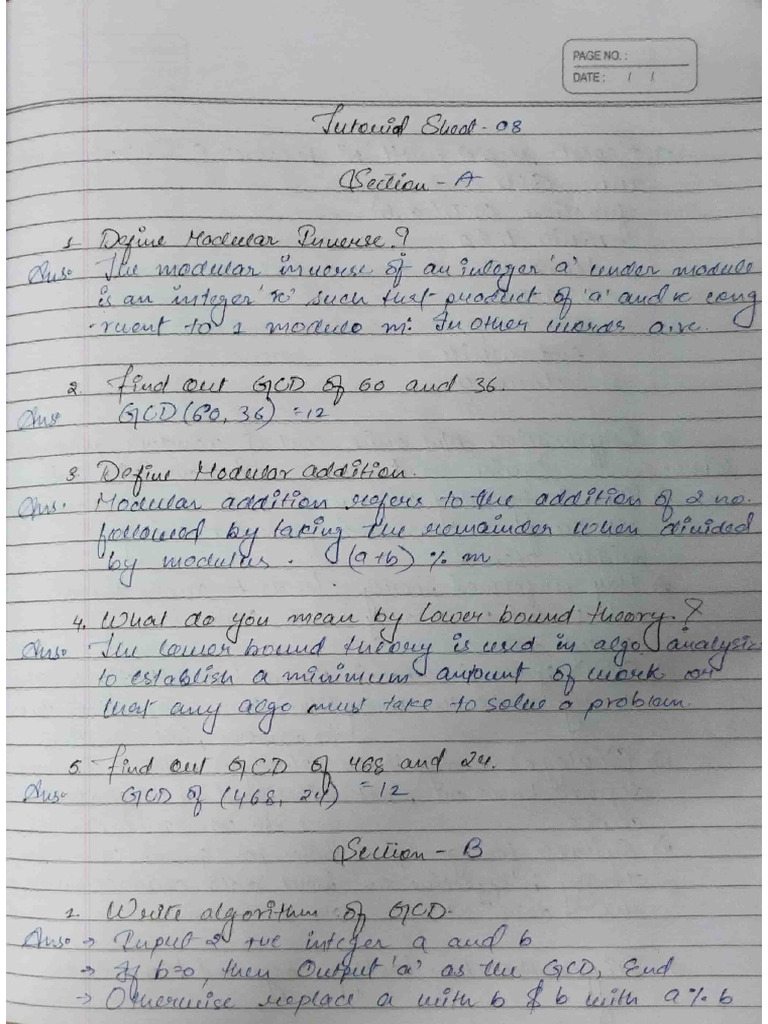 PAGE NO. :
DATE : / /
Tutorial Sheet - 08
Section - A
1. Define Modular Inverse. ?
Ans: The modular inverse of an integer 'a' under modulo
is an integer 'x' such that product of 'a' and x cong
-ruent to 1 modulo m: In other words a.x.
2. Find out GCD of 60 and 36.
Ans GCD (60, 36) = 12
3. Define Modular addition.
Ans. Modular addition refers to the addition of 2 no.
followed by taking the remainder when divided
by modulus. (a+b) % m
4. What do you mean by lower bound theory. ?
Ans: The lower bound theory is used in algo analysis
to establish a minimum amount of work or
that any algo must take to solve a problem.
5. Find out GCD of 468 and 24.
Ans: GCD of (468, 24) = 12.
Section - B
1. Write algorithm of GCD.
Ans: → Input 2 +ve integer a and b
→ If b=0, then Output 'a' as the GCD, End
→ Otherwise replace a with b & b with a % b